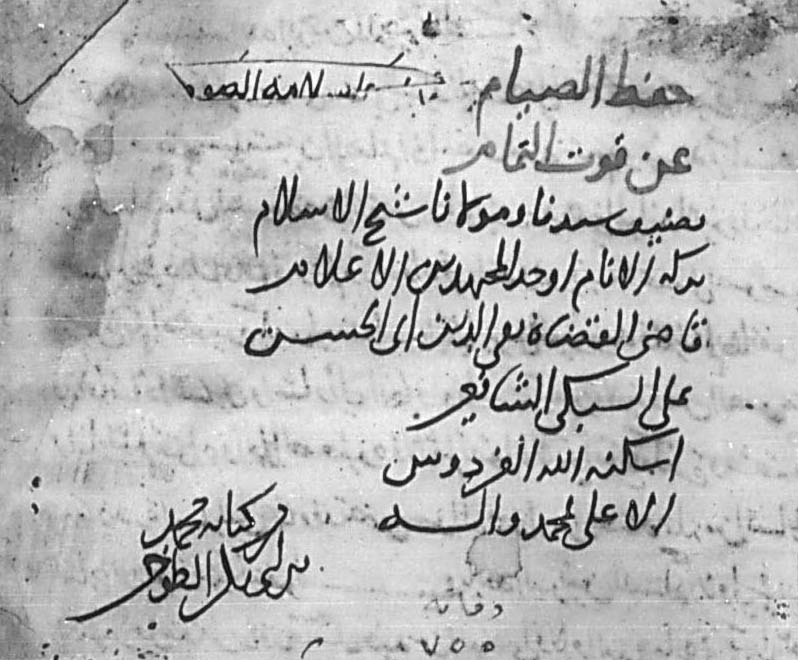 حفظ الصيام
عن فوت التمام
تصنيف سيدنا ومولانا شيخ الاسلام
بركة الانام اوحد المجتهدين الاعلام
قاضي القضاة تقي الدين ابي الحسن
علي السبكي الشافعي
اسكنه الله الفردوس
الاعلى بمحمد واله
محمد
بن ابي بكر
وفاته
٧٥٥